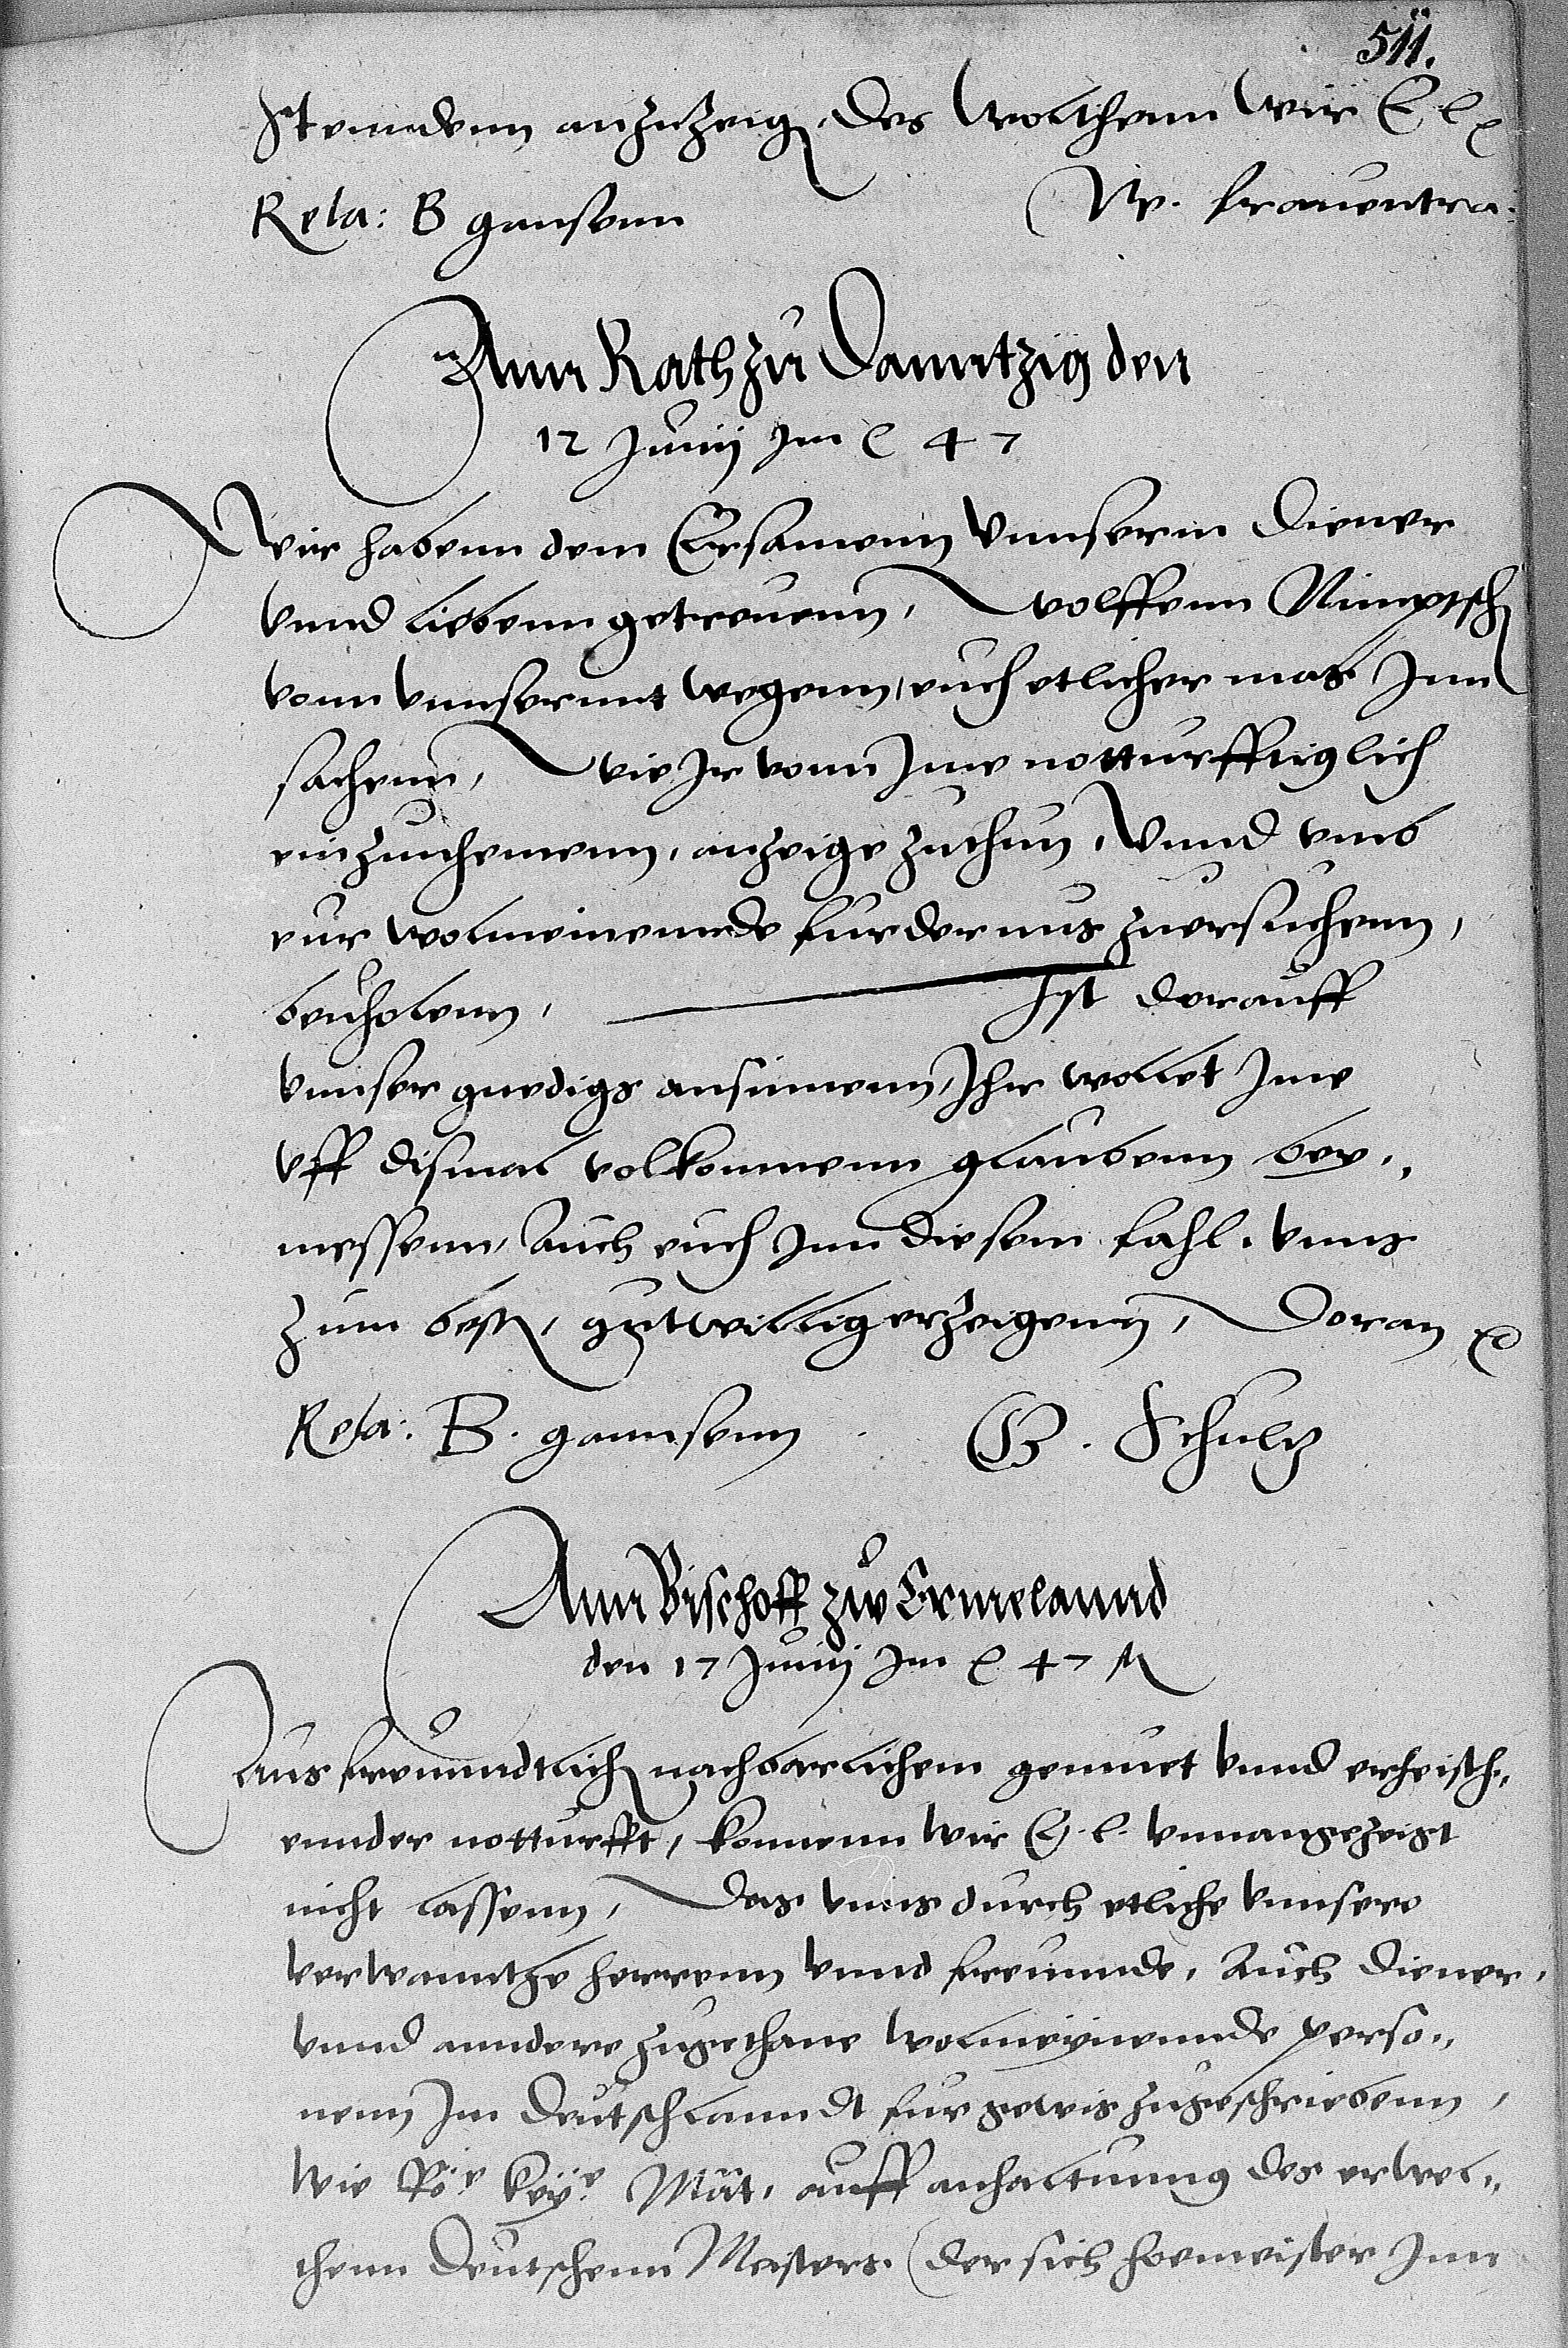 511.
stemdenn anzuzeig, des wolthenn wir E l
Rela: B gansenn N. frauentra:
Ann Rath zu Danntzig den
12 Junij Im 47
Wir habenn dem Ersamenn Unnserm diener
unnd liebenn getreuenn, Wolffenn Nimptsch
vonn unnsernnt wegenn, euch etlicher mas Inn
sachenn, Wie Ir vonn Ime notturfftiglich
einzunehmenn, anzeige zuthun, Unnd umb
eur wolmeinennde furdernus zuersuchenn,
beuholenn, Ist derauff
unnser gnedigs ansinnenn, Ihr wollet Ime
uff dismal volkommenn glaubenn bey„
messenn, Auch euch Inn diesem fahl, unns
zum besten, gutwillig erzeigenn, Doran
Rela: B. gannsenn G. Schulz
Ann Bischoff zu Ermelannd
den 17 Junij Im 47
Aus freunndtlichem nachbarlichem gemuet unnd erheisch„
ennder notturfft, konnenn wir E. l. unnangezeigt
nicht lassenn, Das unns durch etliche unnsere
verwannthe herrenn unnd freunnde, Auch diener,
unnd anndere zugethane wolmeynennde perso„
nenn Im Deutschlanndt fur gewis zugeschriebenn,
Wie Rö: key: Mat. auff anhaltunng des erwel„
thenn Deutschenn Meisters (der sich hoemeister Inn